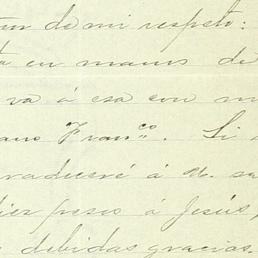 de mi respeto:
en manos de
va á esa con
Fran.co. Si
á U. su
pesos á Jesús,
debidas gracias.